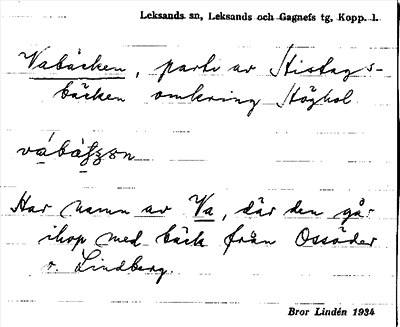 Leksands sn, Leksands och Gagnefs tg, Kopp. l.
Vabäcken, parti av Stistags-
bäcken omkring Stöghol
Har namn av Va, där den går
ihop med bäck från Ossöder
v. Lindberg.
Bror Lindén 1934